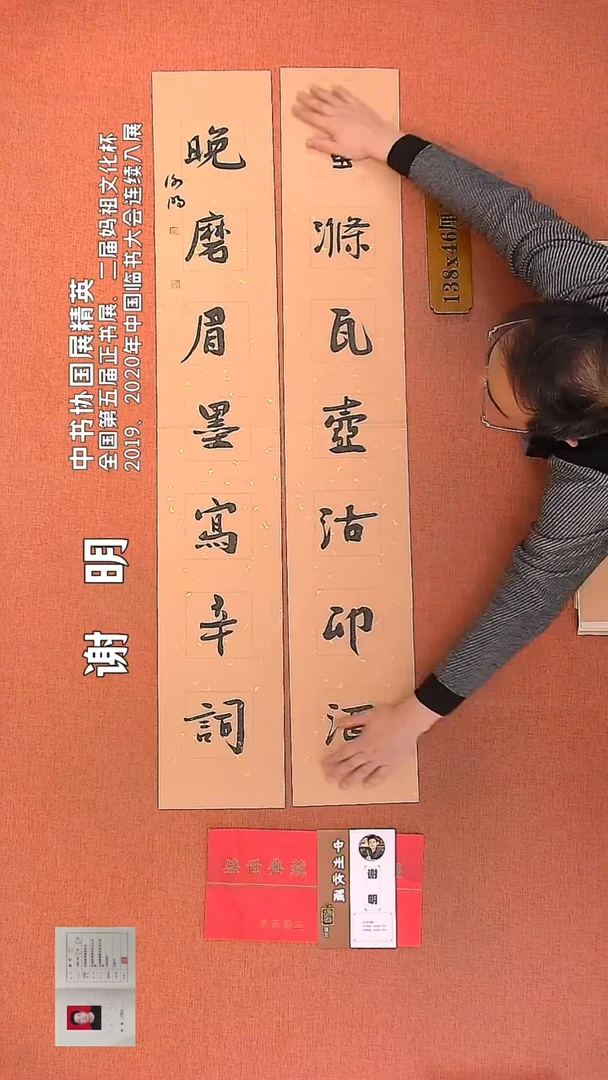 滌瓦壺沽卯酒
晚磨眉墨寫辛詞
谢明
中书协国展精英
全国第五届正书展、二届妈祖文化杯
2019、2020年中国临书大会连续入展
谢 明
138x46厘
中州收藏
谢明